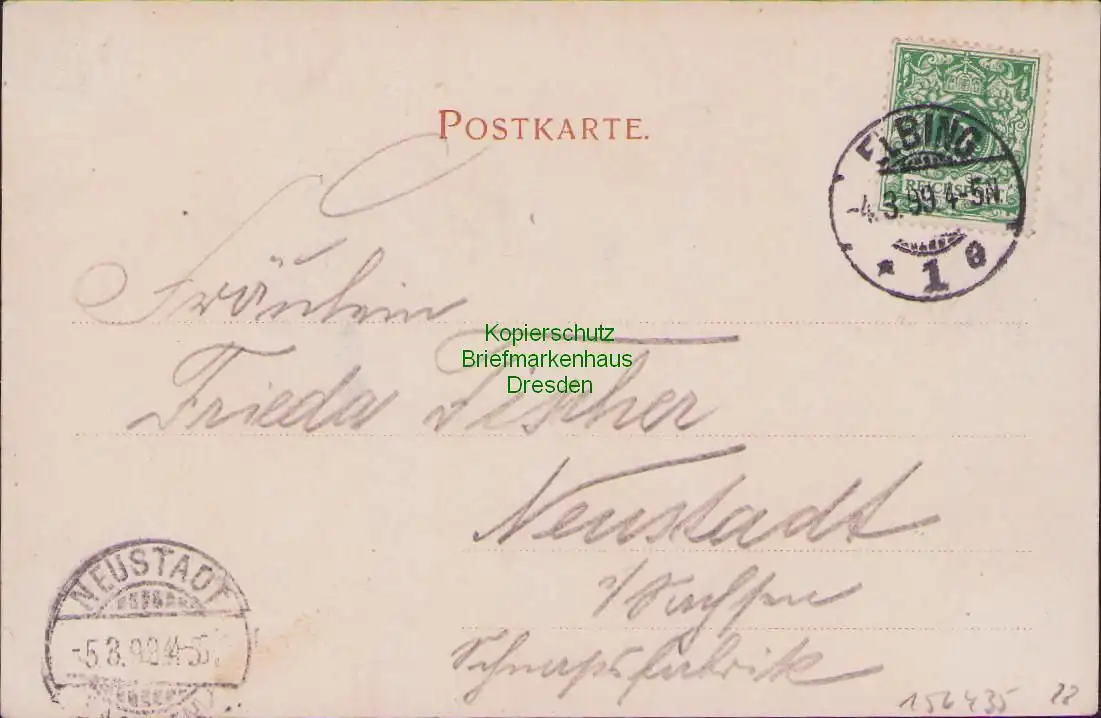 POSTKARTE.
ELBING
-4.3.99 4-5N.
* 1 a
REICHSPOST
Fräulein
Kopierschutz
Briefmarkenhaus
Dresden
Frieda Fischer
Neustadt
i/Sachsen
Schnapsfabrik
NEUSTADT
-5.3.99 4-5
156435 22